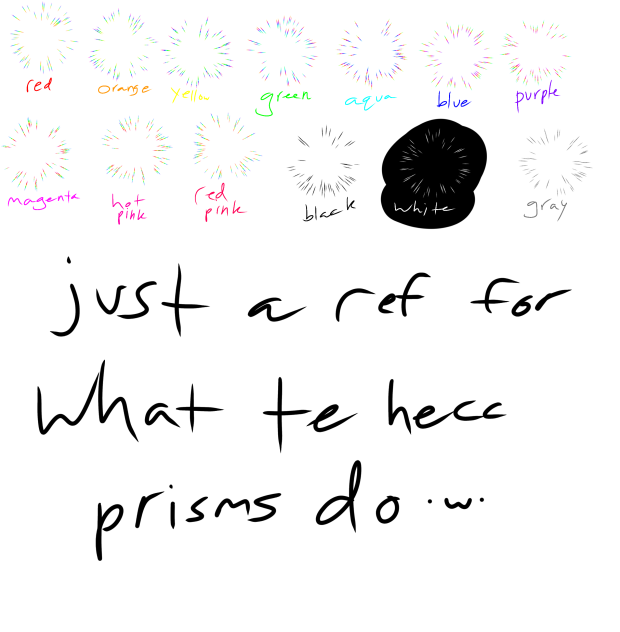 red orange yellow green aqua blue purple
magenta hot pink red pink black white gray
just a ref for
what te hecc
prisms do ·w·